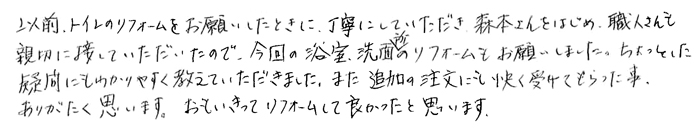 以前、トイレのリフォームをお願いしたときに、丁寧にしていただき、森本さんをはじめ、職人さんも
親切に接していただいたので、今回の浴室、洗面所のリフォームもお願いしました。ちょっとした
疑問にもわかりやすく教えていただきました。また追加の注文にも快く受けてもらった事、
ありがたく思います。おもいきってリフォームして良かったと思います。